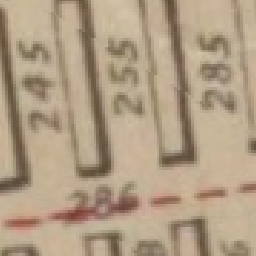 245
255
285
286